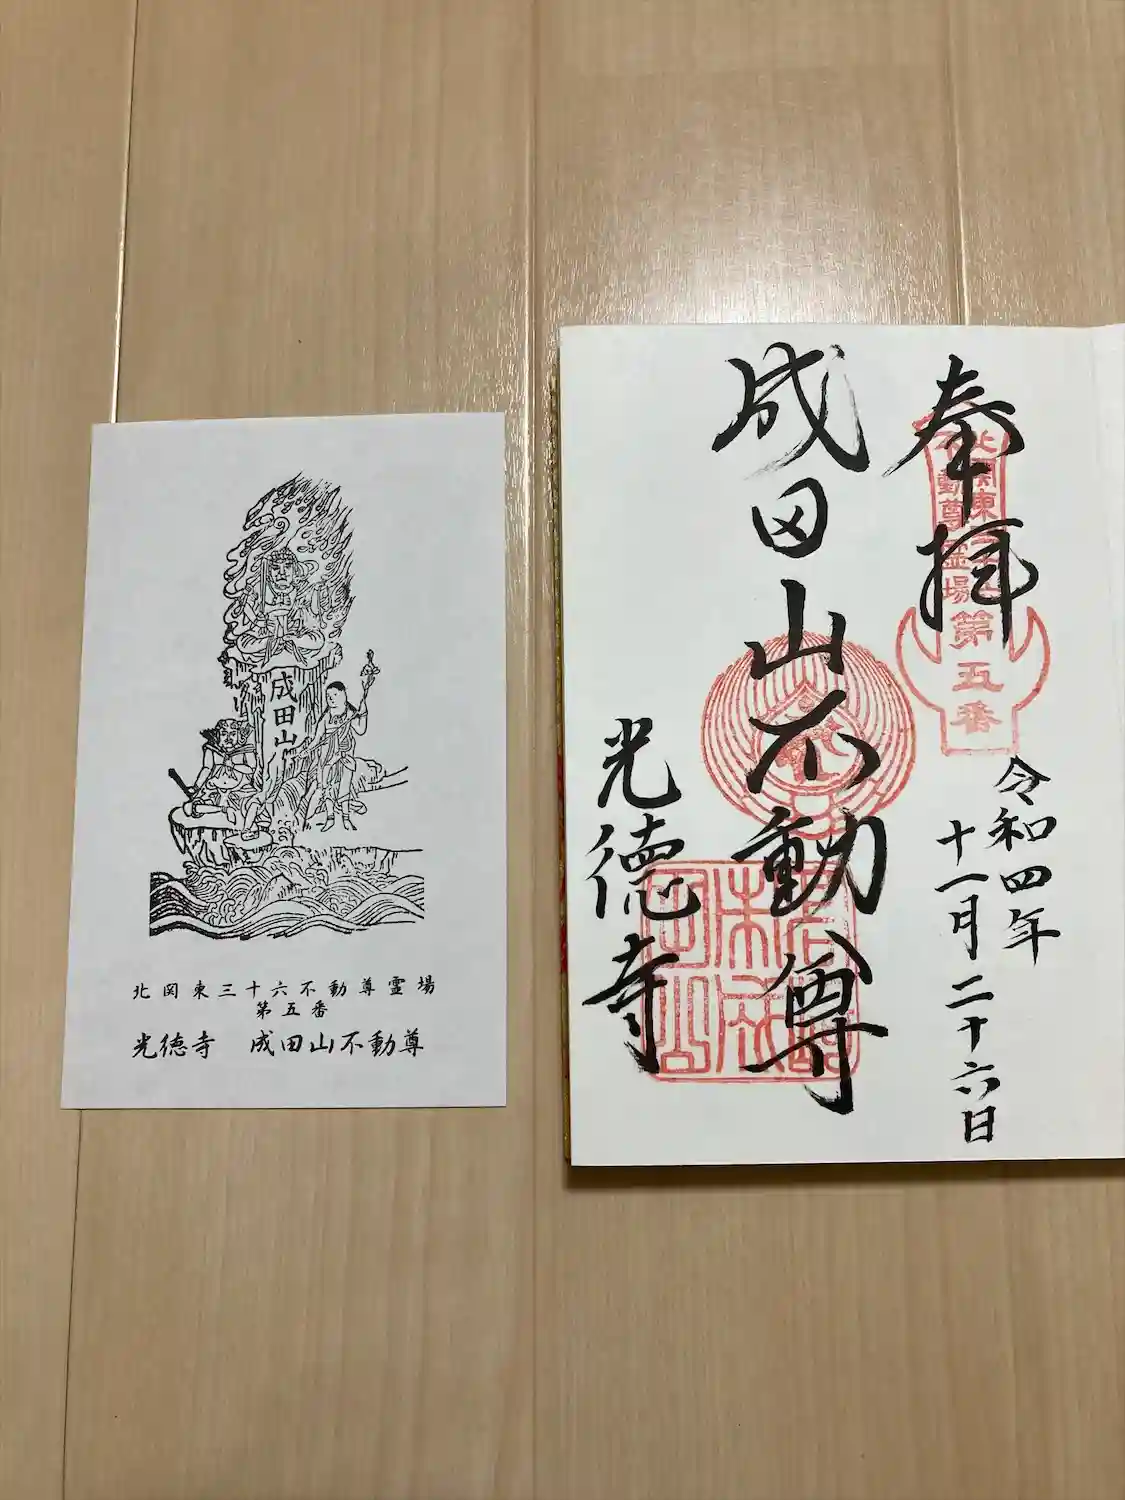 成田山
北関東三十六不動尊霊場
第五番
光徳寺 成田山不動尊
奉拝
北関東三十六
不動尊霊場
第五番
令和四年
十一月二十六日
成田山不動尊
光徳寺